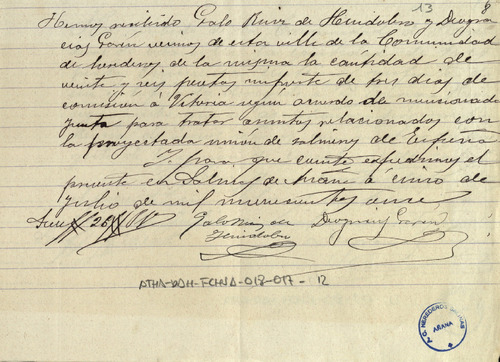 13 8
Hemos recibido Galo Ruiz de Hinidolero y Deogra
cias Gorín vecinos de esta villa de la Comunidad
de herederos de la misma la cantidad de
veinte y seis pesetas importe de tres dias de
comision á Vitoria segun acuerdo de mencionada
Junta para tratar asuntos relacionados con
la proyectada unión de salinas de España
Y para que conste expedimos el
presente en Salinas de Añana á cinco de
Julio de mil novecientos once
Galo Ruiz de
Deogracias
ATHA-DAH-FCHNA-018-017-12
HEREDEROS
AÑANA